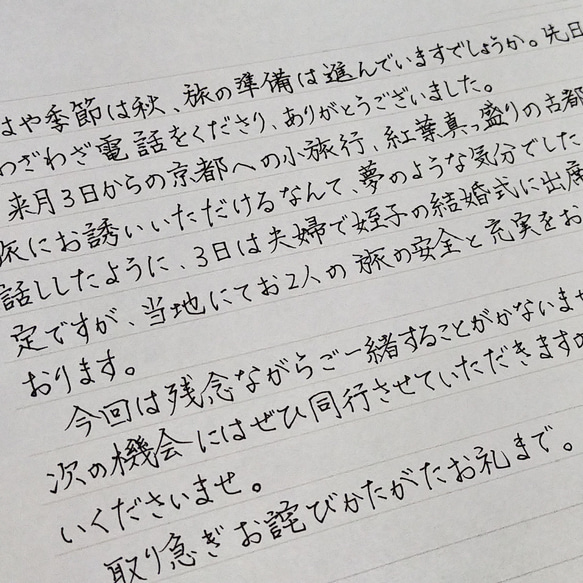 はや季節は秋、旅の準備は進んでいますでしょうか。先日
わざわざ電話をくださり、ありがとうございました。
来月3日からの京都への小旅行、紅葉真っ盛りの古都
旅にお誘いいただけるなんて、夢のような気分でした
話ししたように、3日は夫婦で姪子の結婚式に出席
定ですが、当地にてお2人の旅の安全と充実をお
おります。
今回は残念ながらご一緒することがかないませ
次の機会にはぜひ同行させていただきますの
いくださいませ。
取り急ぎお詫びかたがたお礼まで。